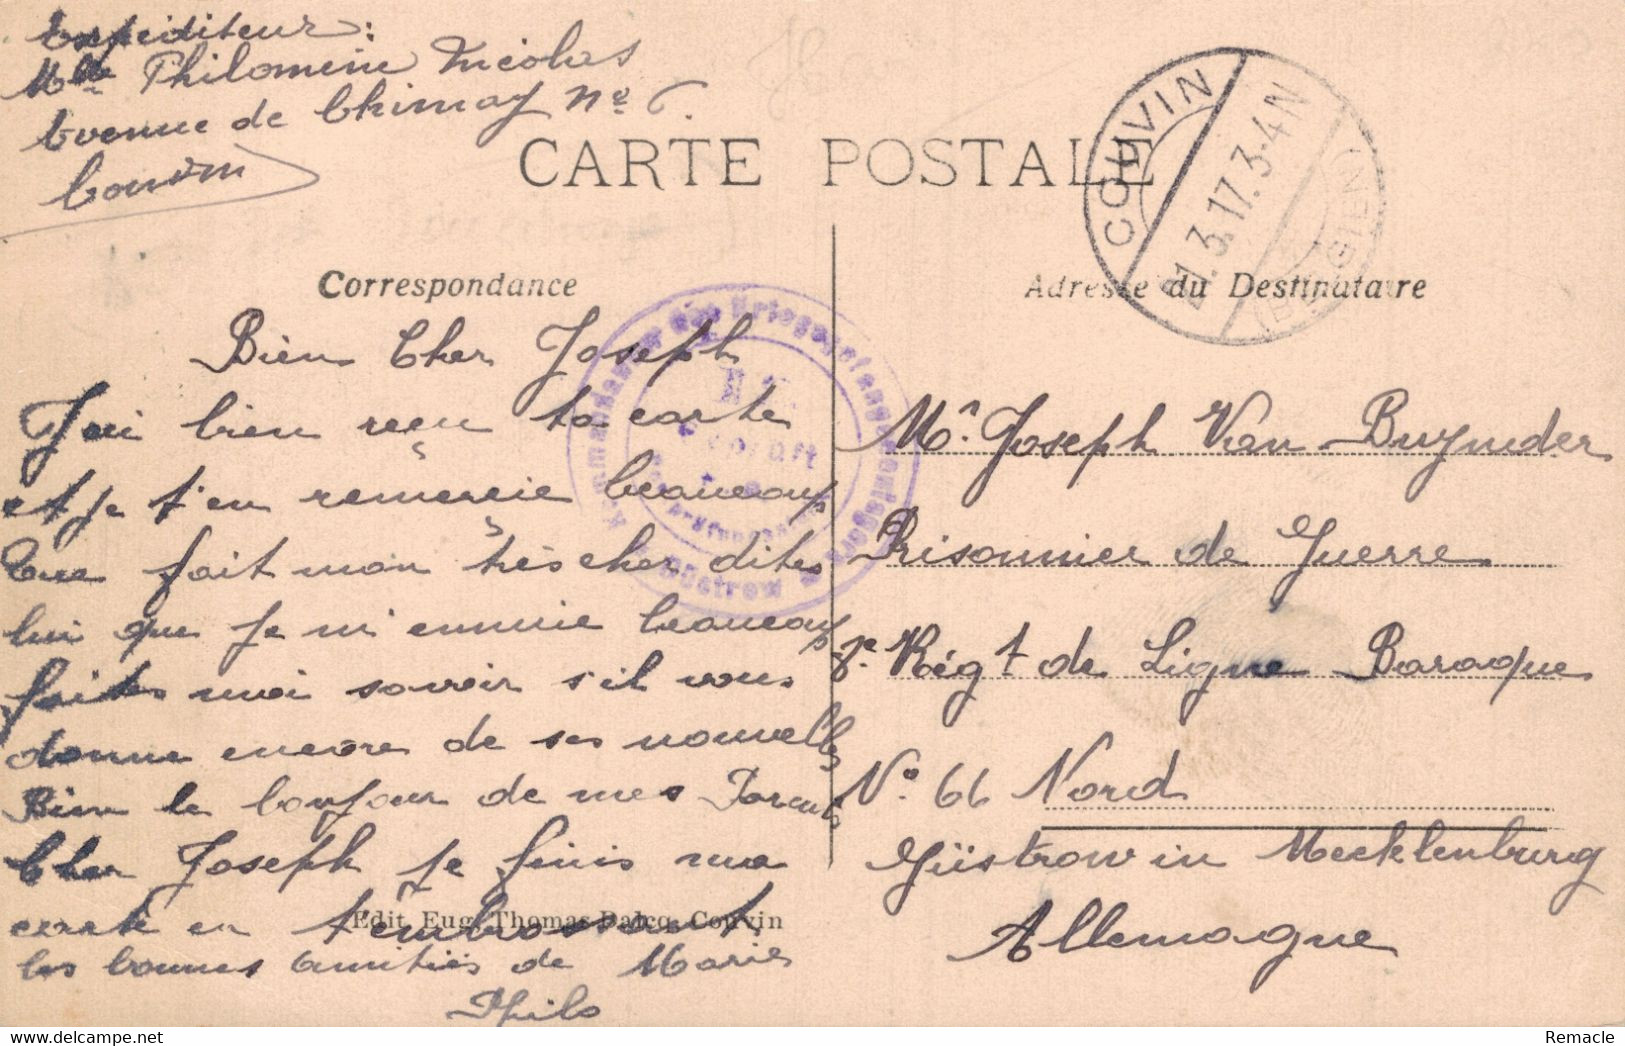 Expéditeur:
Mlle Philomène Nicolas
Avenue de Chimay No 6.
Couvin
CARTE POSTALE
COUVIN
1.3.17.3-4N
(BELGIEN)
Correspondance
Adresse du Destinataire
Kommandantur des Kriegsgefangenenlagers
Güstrow
Geprüft
Bien Cher Joseph
J'ai bien reçu ta carte
et je t'en remercie beaucoup
Que fait mon très cher dites
lui que je m'ennuie beaucoup
faites moi savoir s'il vous
donne encore de ses nouvelles
Bien le bonjour de mes Parents
Cher Joseph je finis ma
carte en t'embrassant
les bonnes amitiés de Marie
Philo
Edit. Eug. Thomas-Dalcq, Couvin
Mr. Joseph Van Buynder
Prisonnier de Guerre
8e. Régt de Ligne Baraque
No. 66 Nord
Güstrow in Mecklenburg
Allemagne
Remacle